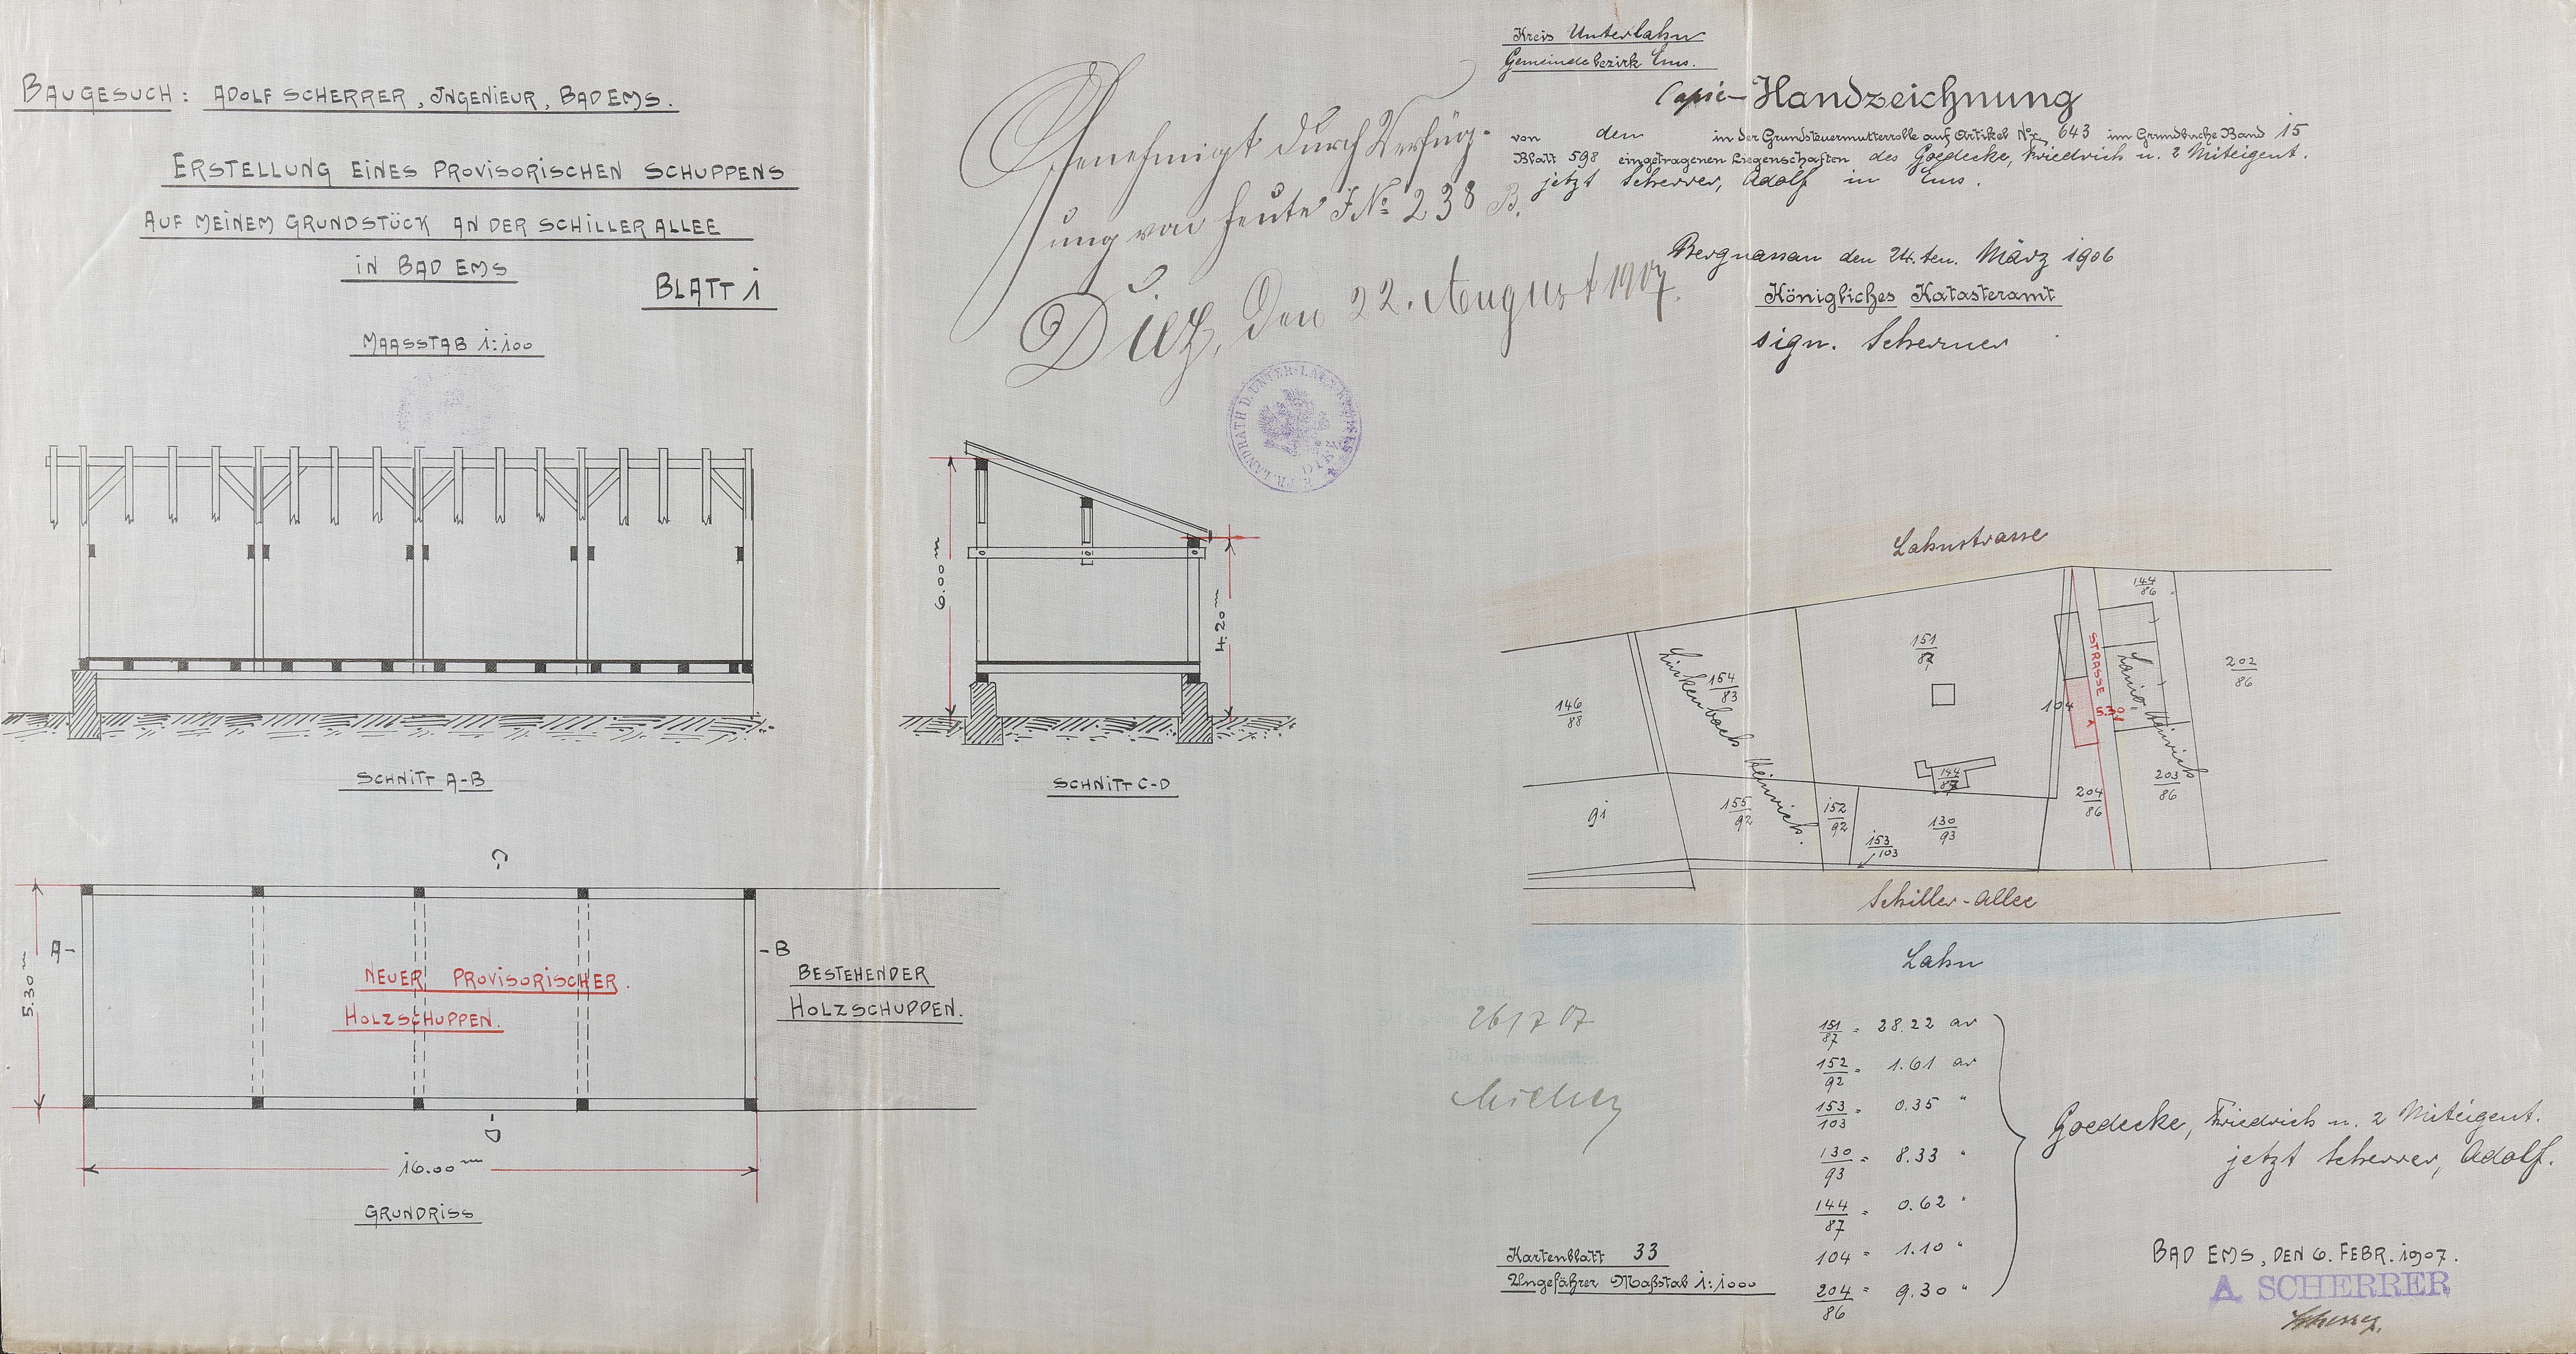 BAUGESUCH: ADOLF SCHERRER, INGENIEUR, BAD EMS.
ERSTELLUNG EINES PROVISORISCHEN SCHUPPENS
AUF MEINEM GRUNDSTÜCK AN DER SCHILLER ALLEE
IN BAD EMS
BLATT 1
MAASSTAB 1:100
SCHNITT A-B
A-
-B
C-
D-
5.30 m
NEUER PROVISORISCHER
HOLZSCHUPPEN.
BESTEHENDER
HOLZSCHUPPEN.
16.00 m
GRUNDRISS
Genehmigt durch Verfüg-
ung von heute J.No. 238 B.
Diez, den 22. August 1907.
LANDRATH D. UNTER-LAHN-KREISES
DIEZ
6.00 m
4.20 m
SCHNITT C-D
Kreis Unterlahn
Gemeindebezirk Ems.
Copie-Handzeichnung
von den in der Grundsteuermutterrolle auf Artikel No. 643 im Grundbuche Band 15
Blatt 598 eingetragenen Liegenschaften des Goedecke, Friedrich u. 2 Miteigent.
jetzt Scherrer, Adolf in Ems.
Bergnassau den 24.ten. März 1906
Königliches Katasteramt
sign. Schermer
Lahnstrasse
146/88
Linkenbach Heinrich.
154/83
151/87
144/87
104
STRASSE
5.30
144/86
Heinrich
202/86
203/86
204/86
91
155/92
152/92
153/103
130/93
Schiller-Allee
Lahn
26/7 07
151/87 = 28.22 ar
152/92 = 1.61 ar
153/103 = 0.35 "
130/93 = 8.33 "
144/87 = 0.62 "
104 = 1.10 "
204/86 = 9.30 "
Goedecke, Friedrich u. 2 Miteigent.
jetzt Scherrer, Adolf.
Kartenblatt 33
Ungefährer Maßstab 1:1000
BAD EMS, DEN 6. FEBR. 1907.
A SCHERRER
Scherrer.